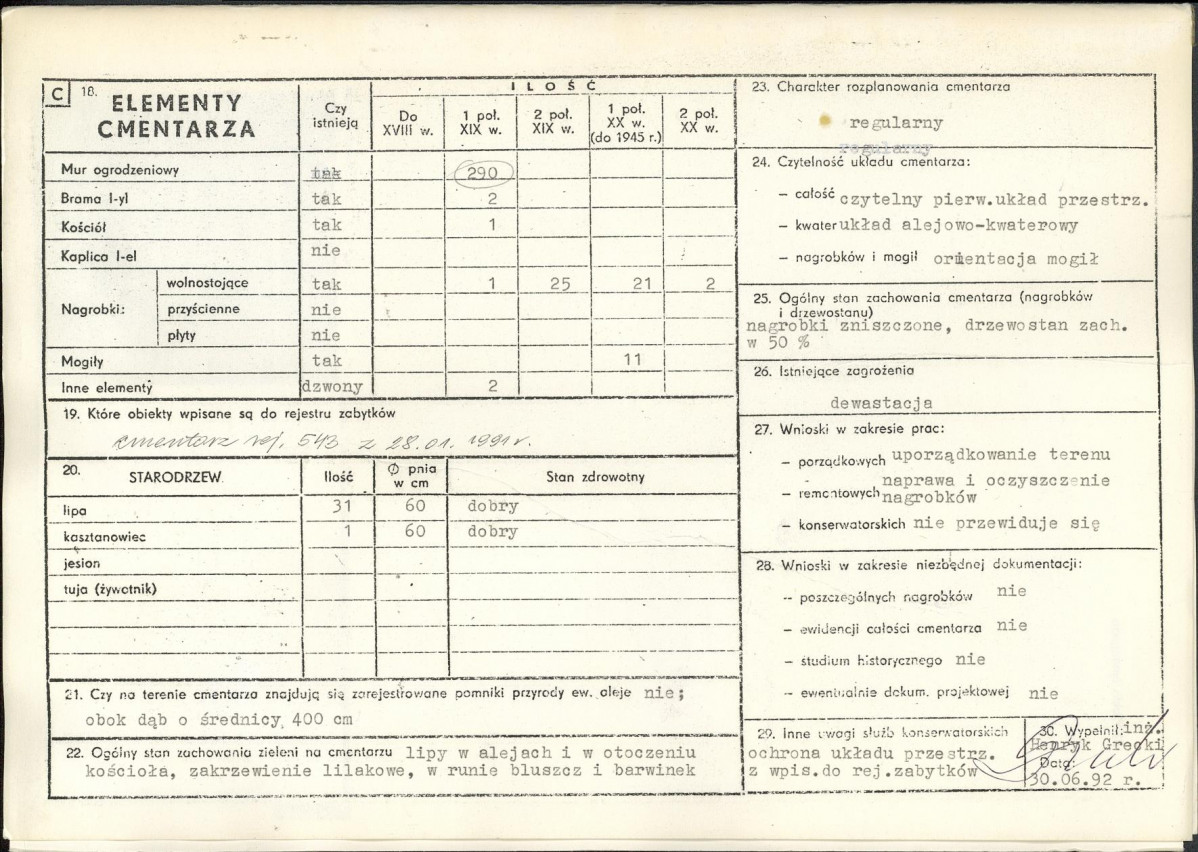 C 18. ELEMENTY CMENTARZA
Czy istnieją
ILOŚĆ
Do XVIII w.
1 poł. XIX w.
2 poł. XIX w.
1 poł. XX w. (do 1945 r.)
2 poł. XX w.
Mur ogrodzeniowy tak 290
Brama I-yl tak 2
Kościół tak 1
Kaplica I-el nie
Nagrobki:
wolnostojące tak 1 25 21 2
przyścienne nie
płyty nie
Mogiły tak 11
Inne elementy dzwony 2
19. Które obiekty wpisane są do rejestru zabytków
cmentarz rej. 543 z 28.01.1991r.
20. STARODRZEW Ilość Ø pnia w cm Stan zdrowotny
lipa 31 60 dobry
kasztanowiec 1 60 dobry
jesion
tuja (żywotnik)
21. Czy na terenie cmentarza znajdują się zarejestrowane pomniki przyrody ew. aleje nie;
obok dąb o średnicy 400 cm
22. Ogólny stan zachowania zieleni na cmentarzu lipy w alejach i w otoczeniu
kościoła, zakrzewienie lilakowe, w runie bluszcz i barwinek
23. Charakter rozplanowania cmentarza
regularny
regularny
24. Czytelność układu cmentarza:
— całość czytelny pierw.układ przestrz.
— kwater układ alejowo-kwaterowy
— nagrobków i mogił orientacja mogił
25. Ogólny stan zachowania cmentarza (nagrobków
i drzewostanu)
nagrobki zniszczone, drzewostan zach.
w 50 %
26. Istniejące zagrożenia
dewastacja
27. Wnioski w zakresie prac:
— porządkowych uporządkowanie terenu
— remontowych naprawa i oczyszczenie
nagrobków
— konserwatorskich nie przewiduje się
28. Wnioski w zakresie niezbędnej dokumentacji:
— poszczególnych nagrobków nie
— ewidencji całości cmentarza nie
— studium historycznego nie
— ewentualnie dokum. projektowej nie
29. Inne uwagi służb konserwatorskich
ochrona układu przestrz.
z wpis.do rej.zabytków
30. Wypełnił: inż.
Henryk Grecki
Data:
30.06.92 r.